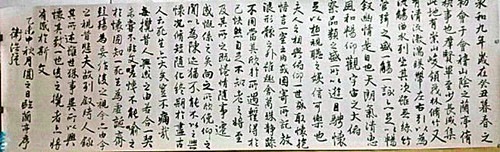 永和九年歲在癸丑暮春之
初會于會稽山陰之蘭亭脩
禊事也群賢畢至少長咸集
此地有崇山峻領茂林脩竹又
有清流激湍映帶左右引以為
流觴曲水列坐其次雖無絲竹
管絃之盛一觴一詠亦足以暢
敘幽情是日也天朗氣清惠
風和暢仰觀宇宙之大俯
察品類之盛所以遊目騁懷
足以極視聽之娛信可樂也
夫人之相與俯仰一世或取諸懷抱
悟言一室之內或因寄所託放
浪形骸之外雖趣舍萬殊靜躁
不同當其欣於所遇暫得於
己快然自足不知老之將至
及其所之既倦情隨事遷
感慨係之矣向之所欣俛仰之
間以為陳迹猶不能不以之興
懷況脩短隨化終期於盡古
人云死生亦大矣豈不痛哉
每攬昔人興感之由若合一契
未嘗不臨文嗟悼不能喻之
於懷固知一死生為虛誕齊
彭殤為妄作後之視今亦由今
之視昔悲夫故列敘時人錄
其所述雖世殊事異所以興
懷其致一也後之攬者亦將
有感於斯文
臨蘭亭序